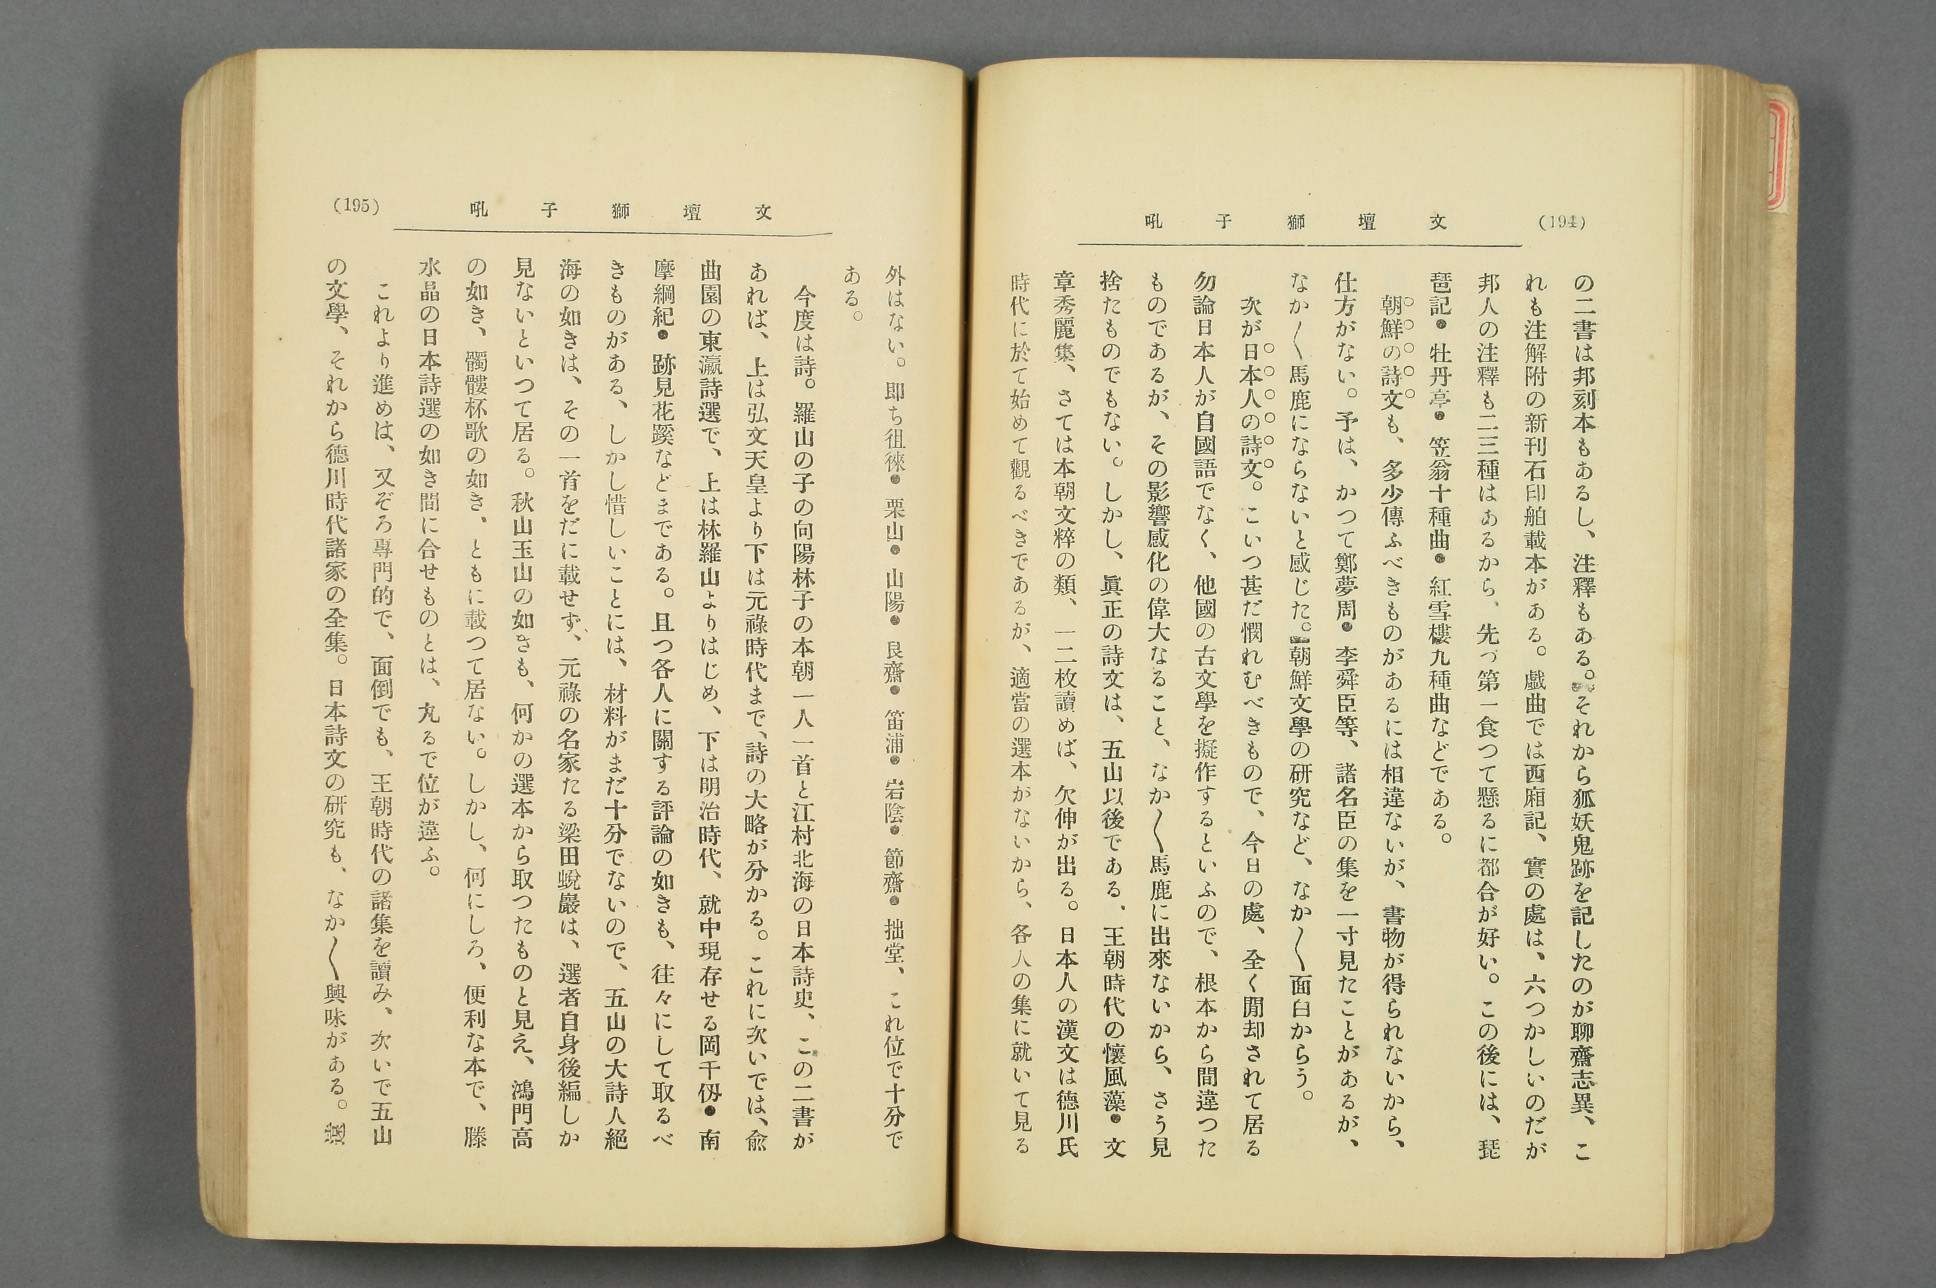 (194)
文壇獅子吼
の二書は邦刻本もあるし、注釋もある。それから狐妖鬼跡を記したのが聊齋志異、こ
れも注解附の新刊石印舶載本がある。戲曲では西廂記、實の處は、六つかしいのだが
邦人の注釋も二三種はあるから、先づ第一食つて懸るに都合が好い。この後には、琵
琶記・牡丹亭・笠翁十種曲・紅雪樓九種曲などである。
朝鮮の詩文も、多少傳ふべきものがあるには相違ないが、書物が得られないから、
仕方がない。予は、かつて鄭夢周・李舜臣等、諸名臣の集を一寸見たことがあるが、
なか〳〵馬鹿にならないと感じた。朝鮮文學の研究など、なか〳〵面白からう。
次が日本人の詩文。こいつ甚だ憫れむべきもので、今日の處、全く閒却されて居る
勿論日本人が自國語でなく、他國の古文學を擬作するといふので、根本から間違つた
ものであるが、その影響感化の偉大なること、なか〳〵馬鹿に出來ないから、さう見
捨たものでもない。しかし、眞正の詩文は、五山以後である．王朝時代の懷風藻・文
章秀麗集、さては本朝文粹の類、一二枚讀めば、欠伸が出る。日本人の漢文は德川氏
時代に於て始めて觀るべきであるが、適當の選本がないから、各人の集に就いて見る
(195)
文壇獅子吼
外はない。即ち徂徠・栗山・山陽・艮齋・笛浦・岩陰・節齋・拙堂、これ位で十分で
ある。
今度は詩。羅山の子の向陽林子の本朝一人一首と江村北海の日本詩史、この二書が
あれば、上は弘文天皇より下は元祿時代まで、詩の大略が分かる。これに次いでは、兪
曲園の東瀛詩選で、上は林羅山よりはじめ、下は明治時代、就中現存せる岡千仭・南
摩綱紀・跡見花蹊などまである。且つ各人に關する評論の如きも、往々にして取るべ
きものがある、しかし惜しいことには、材料がまだ十分でないので、五山の大詩人絕
海の如きは、その一首をだに載せず、元祿の名家たる梁田蛻巖は、選者自身後編しか
見ないといつて居る。秋山玉山の如きも、何かの選本から取つたものと見え、鴻門高
の如き、髑髏杯歌の如き、ともに載つて居ない。しかし、何にしろ、便利な本で、滕
水晶の日本詩選の如き間に合せものとは、丸るで位が違ふ。
これより進めは、又ぞろ專門的で、面倒でも、王朝時代の諸集を讀み、次いで五山
の文學、それから德川時代諸家の全集。日本詩文の研究も、なか〳〵興味がある。